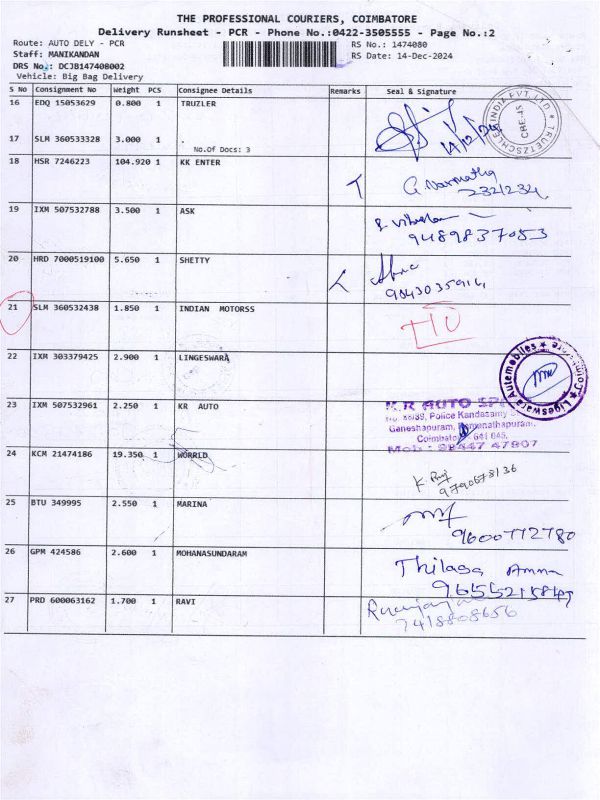 THE PROFESSIONAL COURIERS, COIMBATORE
Delivery Runsheet - PCR - Phone No.:0422-3505555 - Page No.:2
Route: AUTO DELY - PCR RS No.: 1474080
Staff: MANIKANDAN RS Date: 14-Dec-2024
DRS No.: DCJB147408002
Vehicle: Big Bag Delivery
S No Consignment No Weight PCS Consignee Details Remarks Seal & Signature
16 EDQ 15053629 0.800 1 TRUZLER
14/12/24
TRUETZSCHLER INDIA PVT. LTD. CBE-45
17 SLM 360533328 3.000 1 .
No.Of Docs: 3
18 HSR 7246223 104.920 1 KK ENTER
G. Narmatha
232/234
19 IXM 507532788 3.500 1 ASK
9489837053
20 HRD 7000519100 5.650 1 SHETTY
9043035914
21 SLM 360532438 1.850 1 INDIAN MOTORSS
22 IXM 303379425 2.900 1 LINGESWARA
Ligeswara Automobiles
23 IXM 507532961 2.250 1 KR AUTO
K.R AUTO
Police Kandasamy
Ganeshapuram, Ramanathapuram,
Coimbatore - 641 045.
Mob : 98447 47907
24 KCM 21474186 19.350 1 WORRLD
9790678136
25 BTU 349995 2.550 1 MARINA
9600772780
26 GPM 424586 2.600 1 MOHANASUNDARAM
Thilaga Amma
27 PRD 600063162 1.700 1 RAVI
7418808656